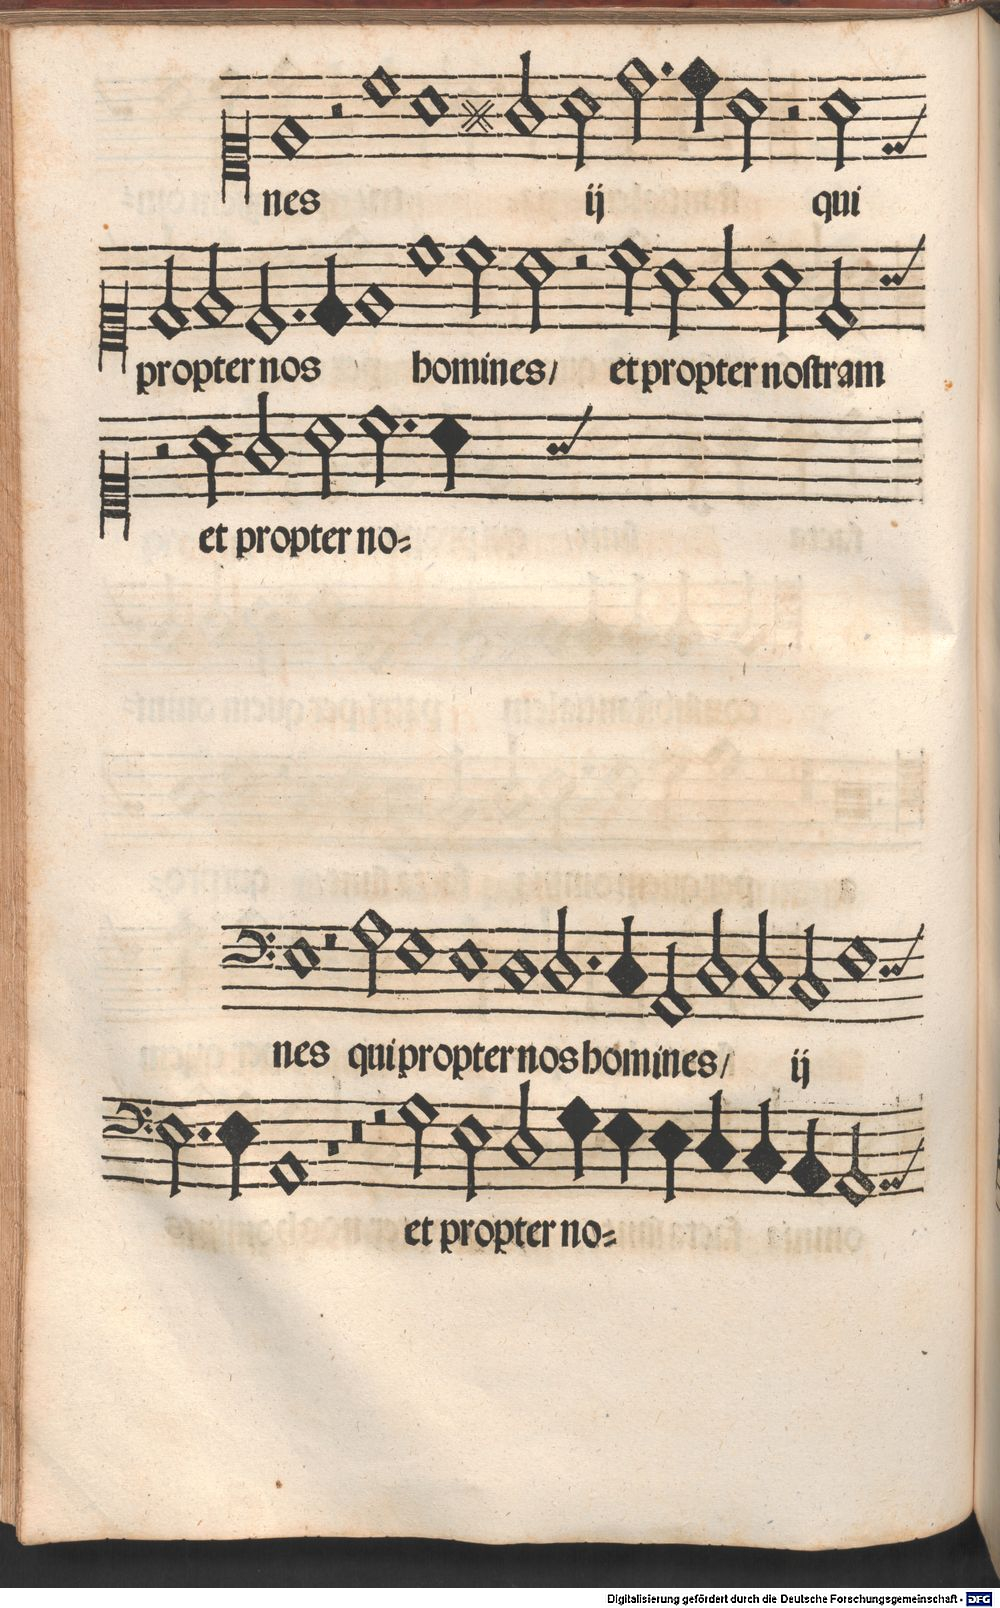 nes ij qui
propter nos homines/ et propter noſtram
et propter no=
nes qui propter nos homines/ ij
et propter no=
Digitalisierung gefördert durch die Deutsche Forschungsgemeinschaft - DFG